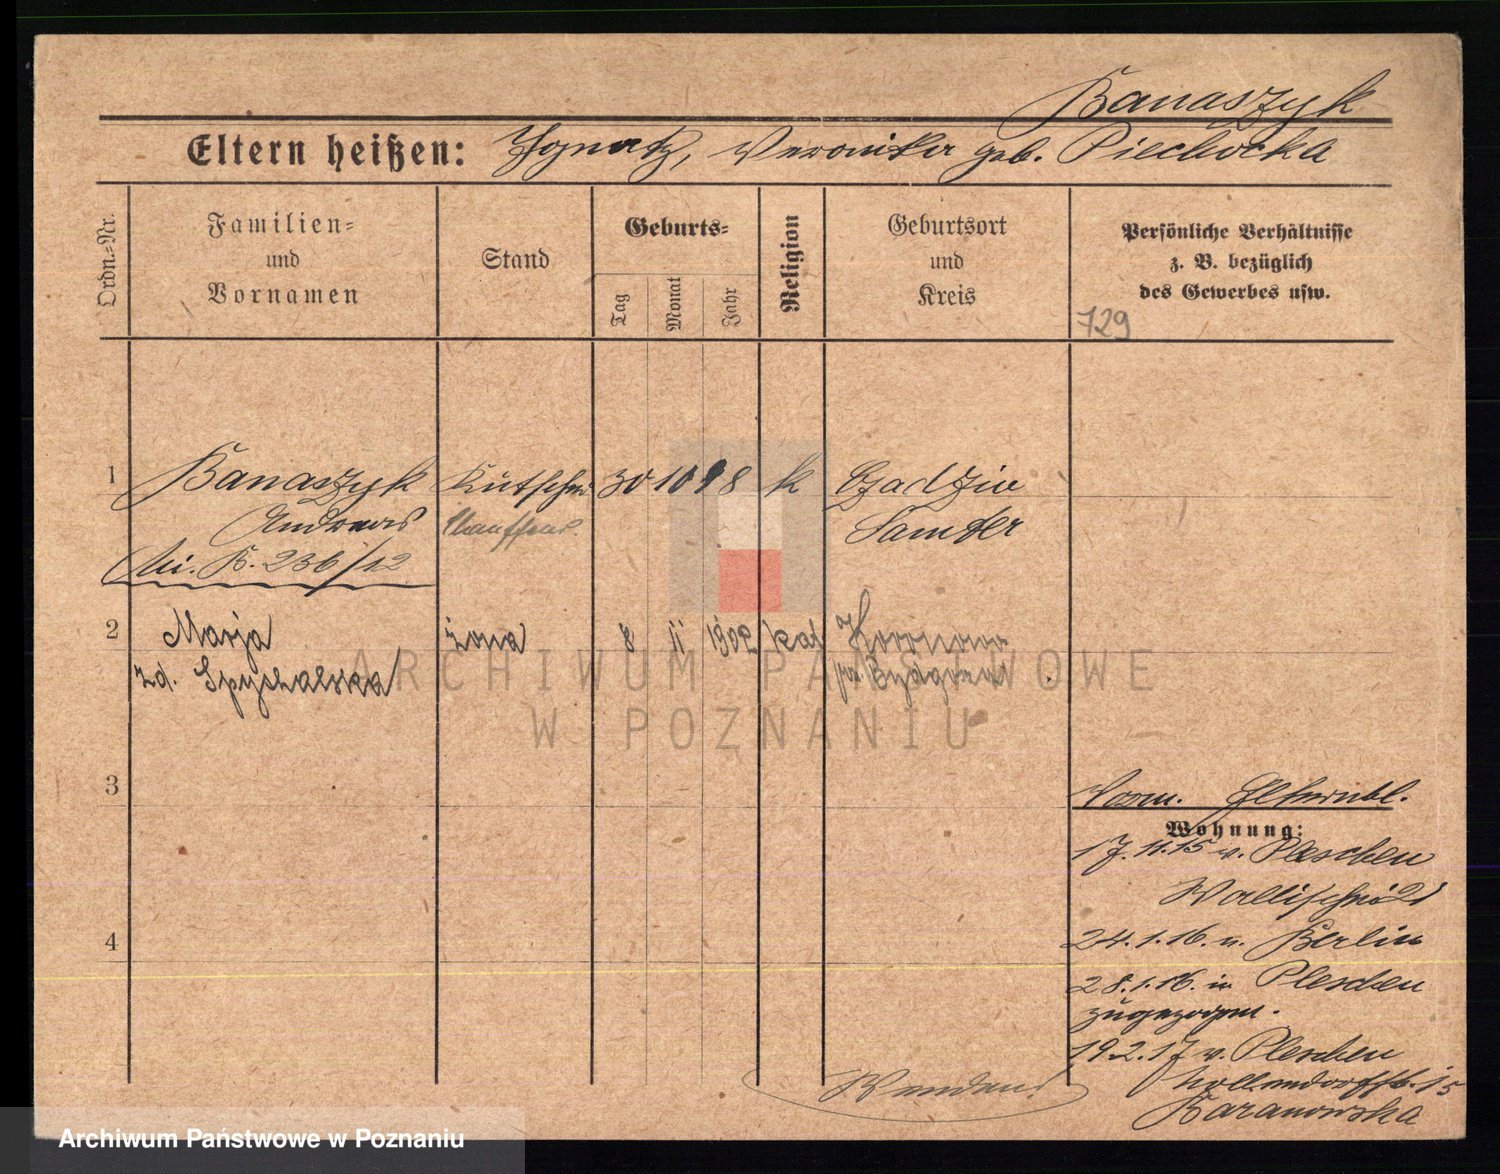 Banaszyk
Eltern heißen: Ignatz, Veronika geb. Piechocka
Ordn.-Nr.
Familien-
und
Vornamen
Stand
Geburts-
Tag
Monat
Jahr
Religion
Geburtsort
und
Kreis
Persönliche Verhältnisse
z. B. bezüglich
des Gewerbes usw.
729
1 Banaszyk Kutscher 30 10 98 k
Andreas Chauffeur
Samter
Mi. K. 236/12
2 Marja żona 8 11 1902 kat
zd. Spychalska
3
Vorm. Elternbl.
Wohnung:
17.11.15 v. Pleschen
Wallischei 21
4
24.1.16. n. Berlin
28.1.16. in Pleschen
zugezogen.
19.2.17 v. Pleschen
Wenden!
Nollendorffstr. 15
Baranowska
ARCHIWUM PAŃSTWOWE
W POZNANIU
Archiwum Państwowe w Poznaniu